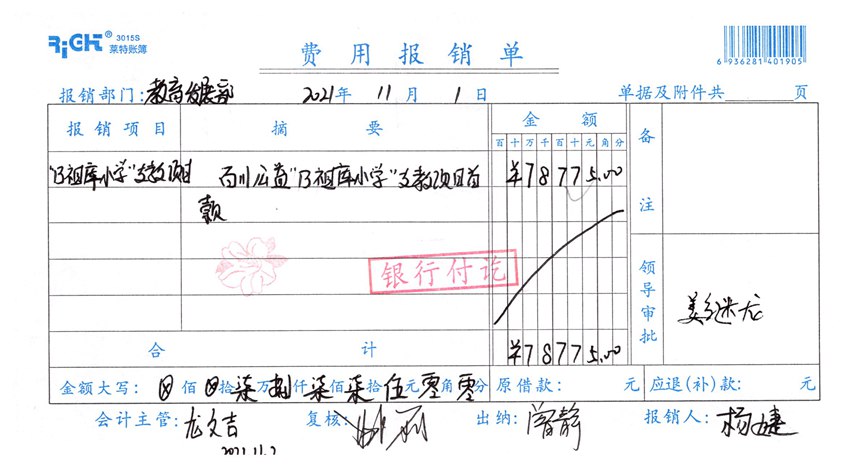 RiGHT® 3015S
莱特账簿
费用报销单
6 936281 401905
报销部门:教育发展部 2021年 11月 1日 单据及附件共 页
报销项目 摘要 金额 备注
百十万千百十元角分
"乃祖库小学"支教项目 百川公益"乃祖库小学"支教项目首
款
¥78775.00
银行付讫
领导审批 姜继龙
合计 ¥78775.00
金额大写: ⊗佰⊗拾柒万捌仟柒佰柒拾伍元零角零分 原借款: 元 应退(补)款: 元
会计主管:龙文吉 复核: 出纳:曾静 报销人:杨婕
2021.11.2